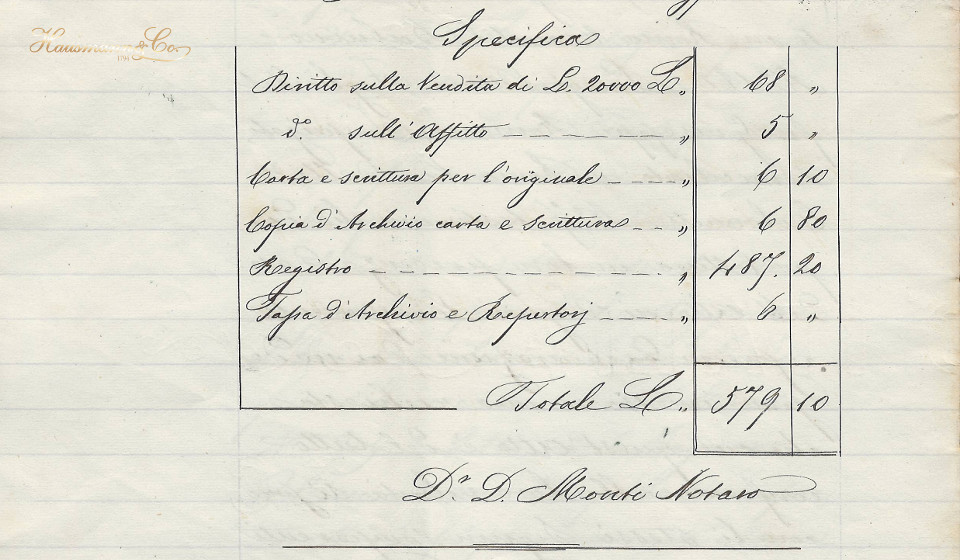 Hausmann & Co.
Specifica
Diritto sulla Vendita di L. 20000 L. „ 68 „
d.° sull'Affitto — — — — — „ 5 „
Carta e scrittura per l'originale — - — - „ 6 10
Copia d'Archivio carta e scrittura - - „ 6 80
Registro — — — — — — — — — „ 487. 20
Tassa d'Archivio e Repertorj — — — - „ 6 „
Totale L. „ 579 10
D.r D. Monti Notaro